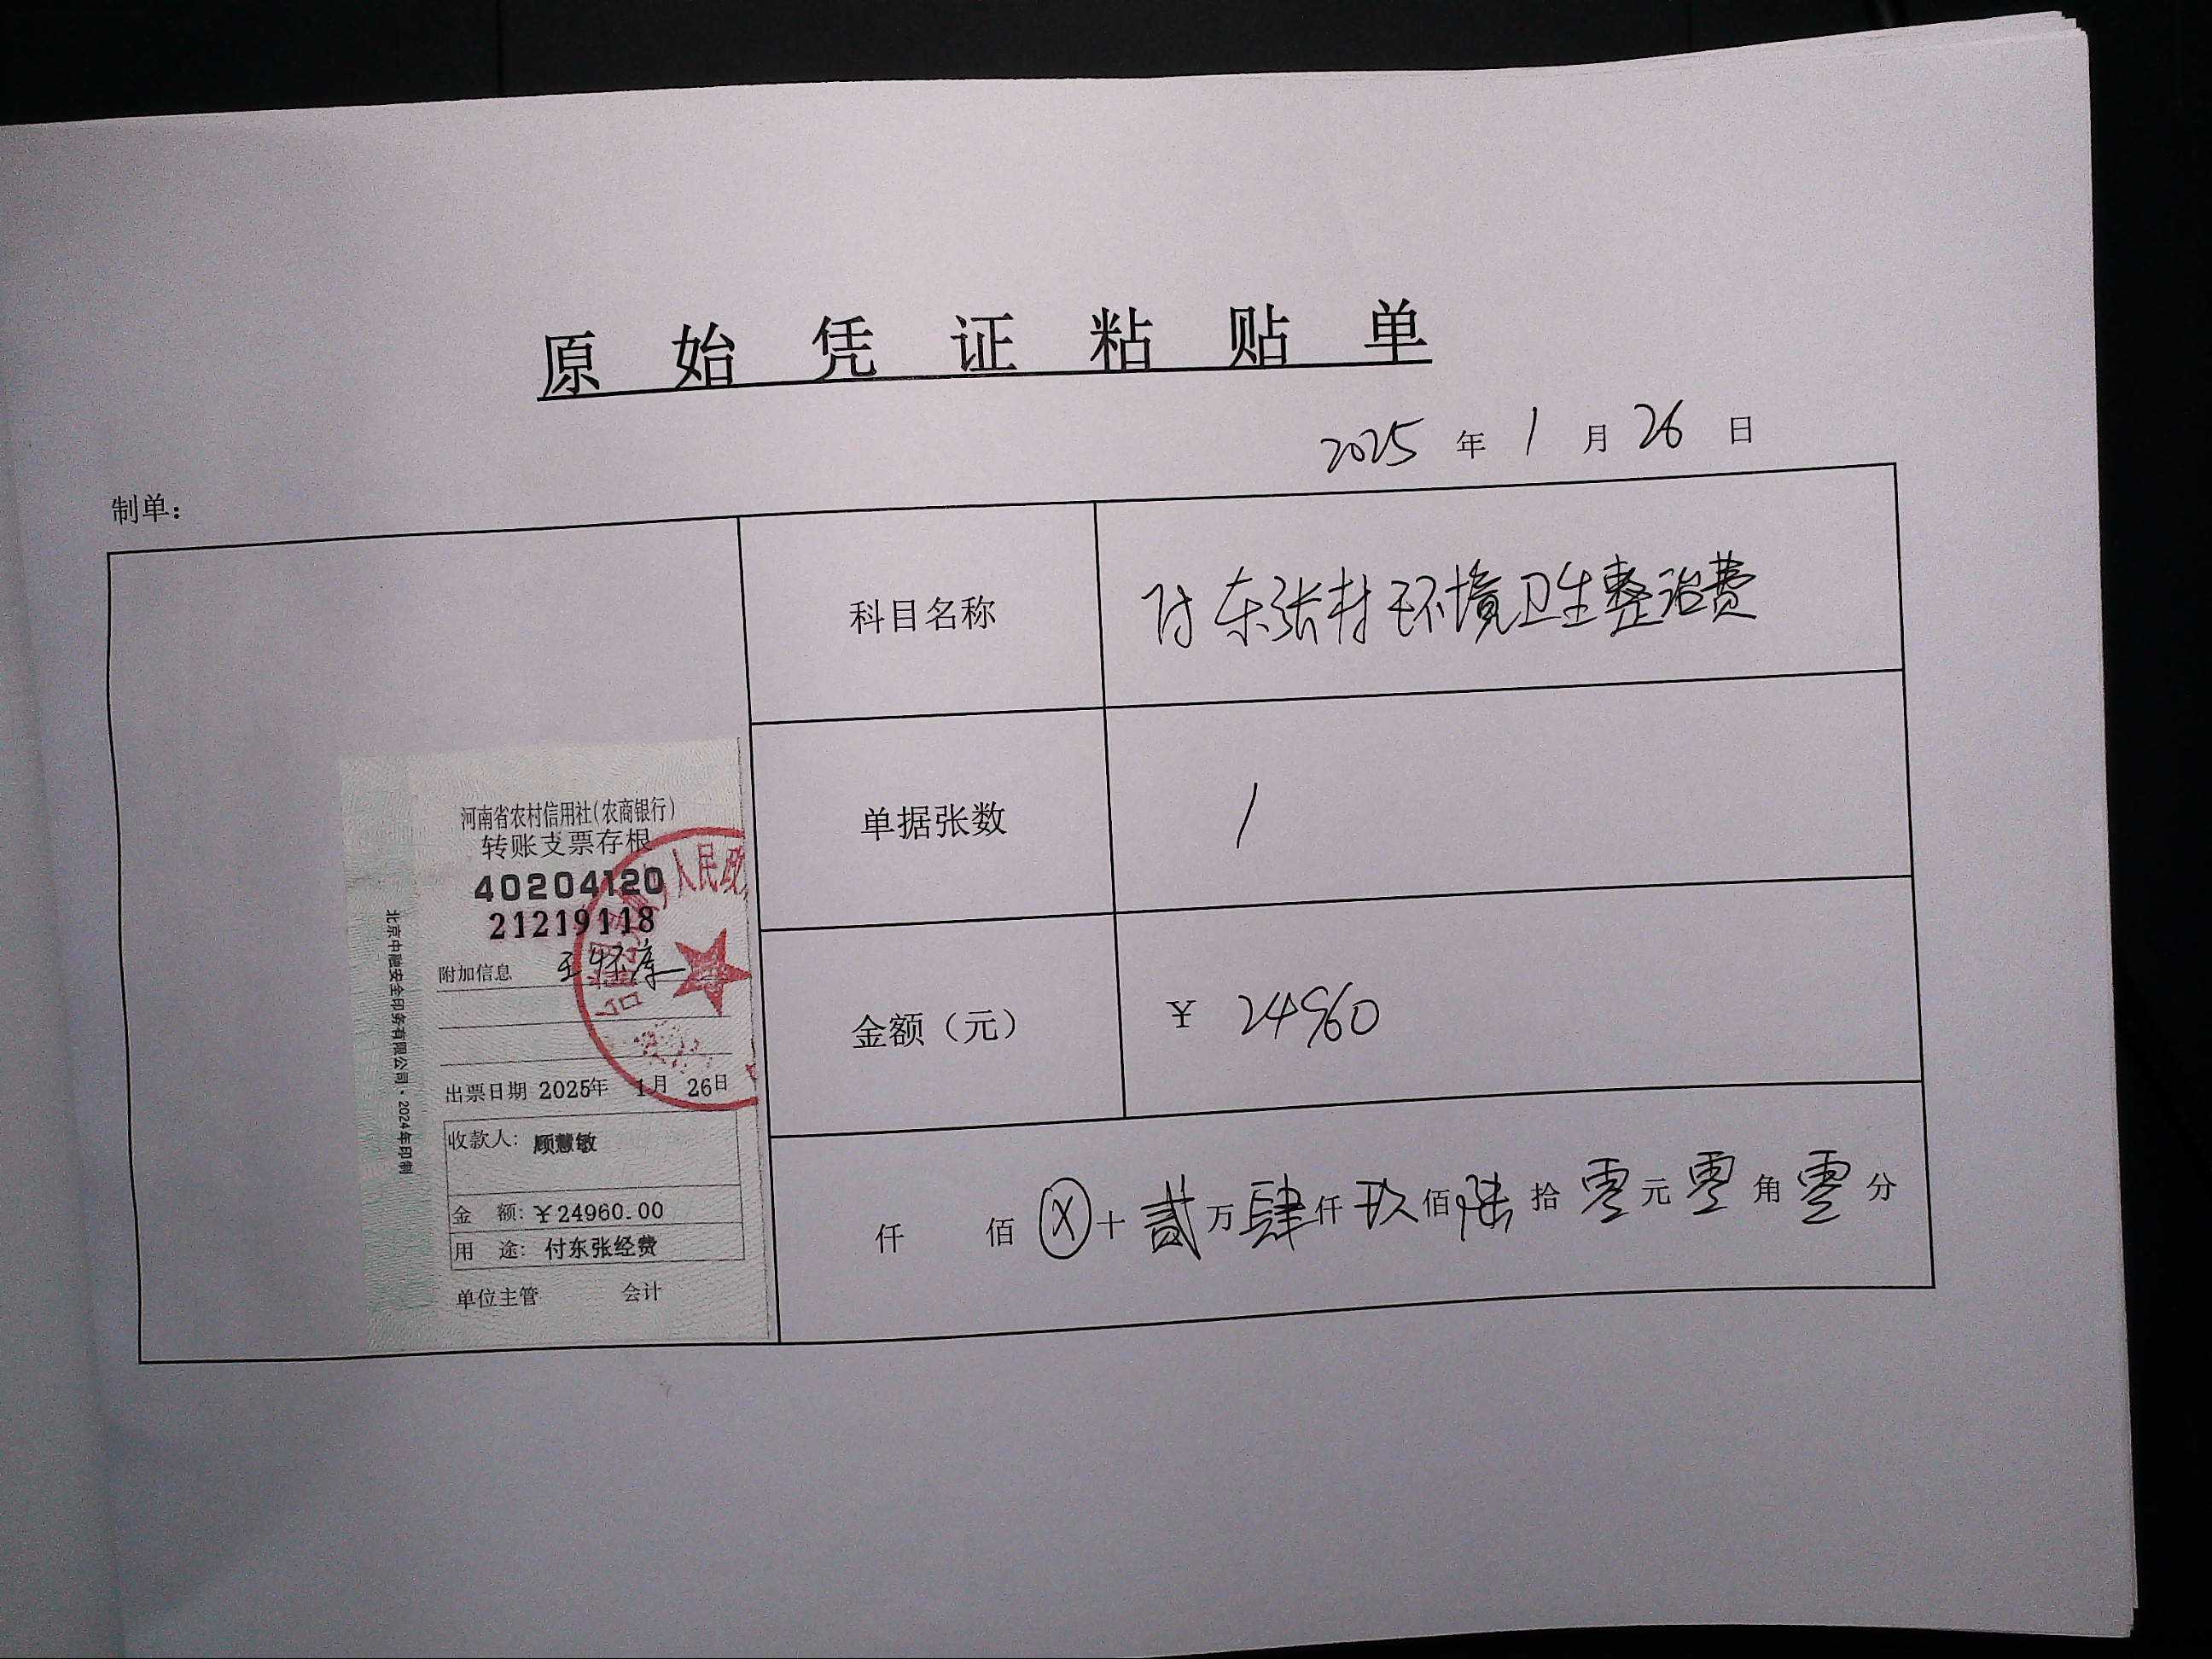 原始凭证粘贴单
2025年1月26日
制单：
科目名称 付东张村环境卫生整治费
单据张数 1
金额（元） ¥ 24960
仟 佰 ⓧ十贰万肆仟玖佰陆拾零元零角零分
河南省农村信用社(农商银行)
转账支票存根
40204120
21219118
附加信息
出票日期 2025年 1月 26日
收款人: 顾慧敏
金 额: ¥24960.00
用 途: 付东张经费
单位主管 会计
北京中融安全印务有限公司·2024年印制
人民政